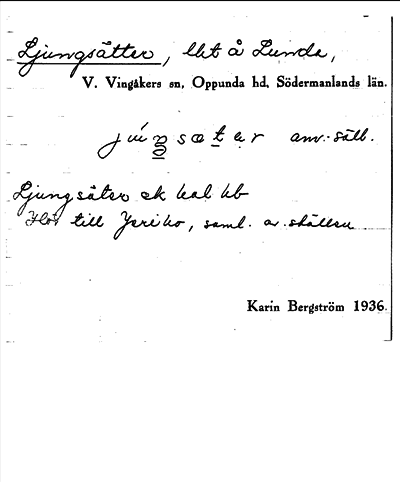 Ljungsätter, lht å Lunda,
V. Vingåkers sn, Oppunda hd, Södermanlands län.
anv. säll.
Ljungsäter ek kal hb
till Jeriko, saml. av ställen
Karin Bergström 1936.